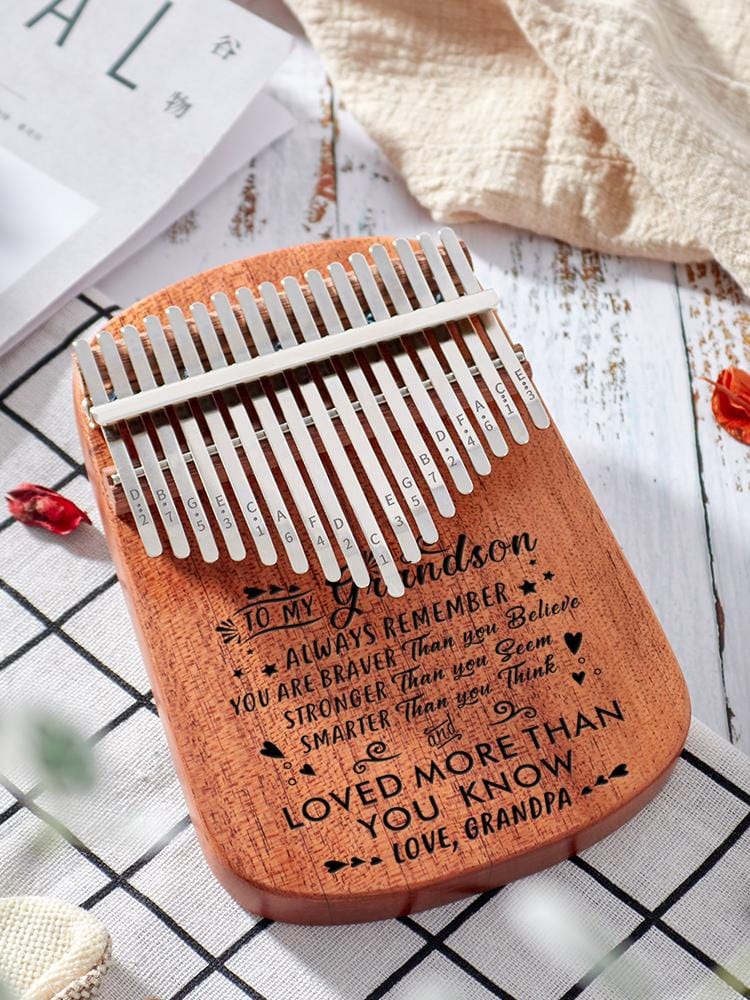 AL
谷
物
D 2
B 7
G 5
E 3
C 1
A 6
F 4
D 2
C 1
E 3
G 5
B 7
D 2
F 4
A 6
C 1
E 3
TO MY Grandson
ALWAYS REMEMBER
YOU ARE BRAVER Than you Believe
STRONGER Than you Seem
SMARTER Than you Think
and
LOVED MORE THAN
YOU KNOW
LOVE, GRANDPA